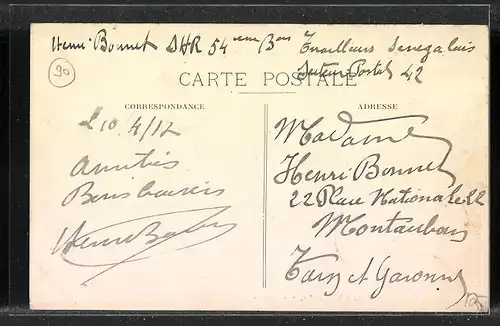 Henri Bonnet SHR 54eme Bon Tirailleurs Senegalais
Secteur Postal 42
90
CARTE POSTALE
CORRESPONDANCE
ADRESSE
Le 10/4/17
Amitiés
Bons baisers
Henri
Madame
Henri Bonnet
22 Place Nationale 22
Montauban
Tarn et Garonne